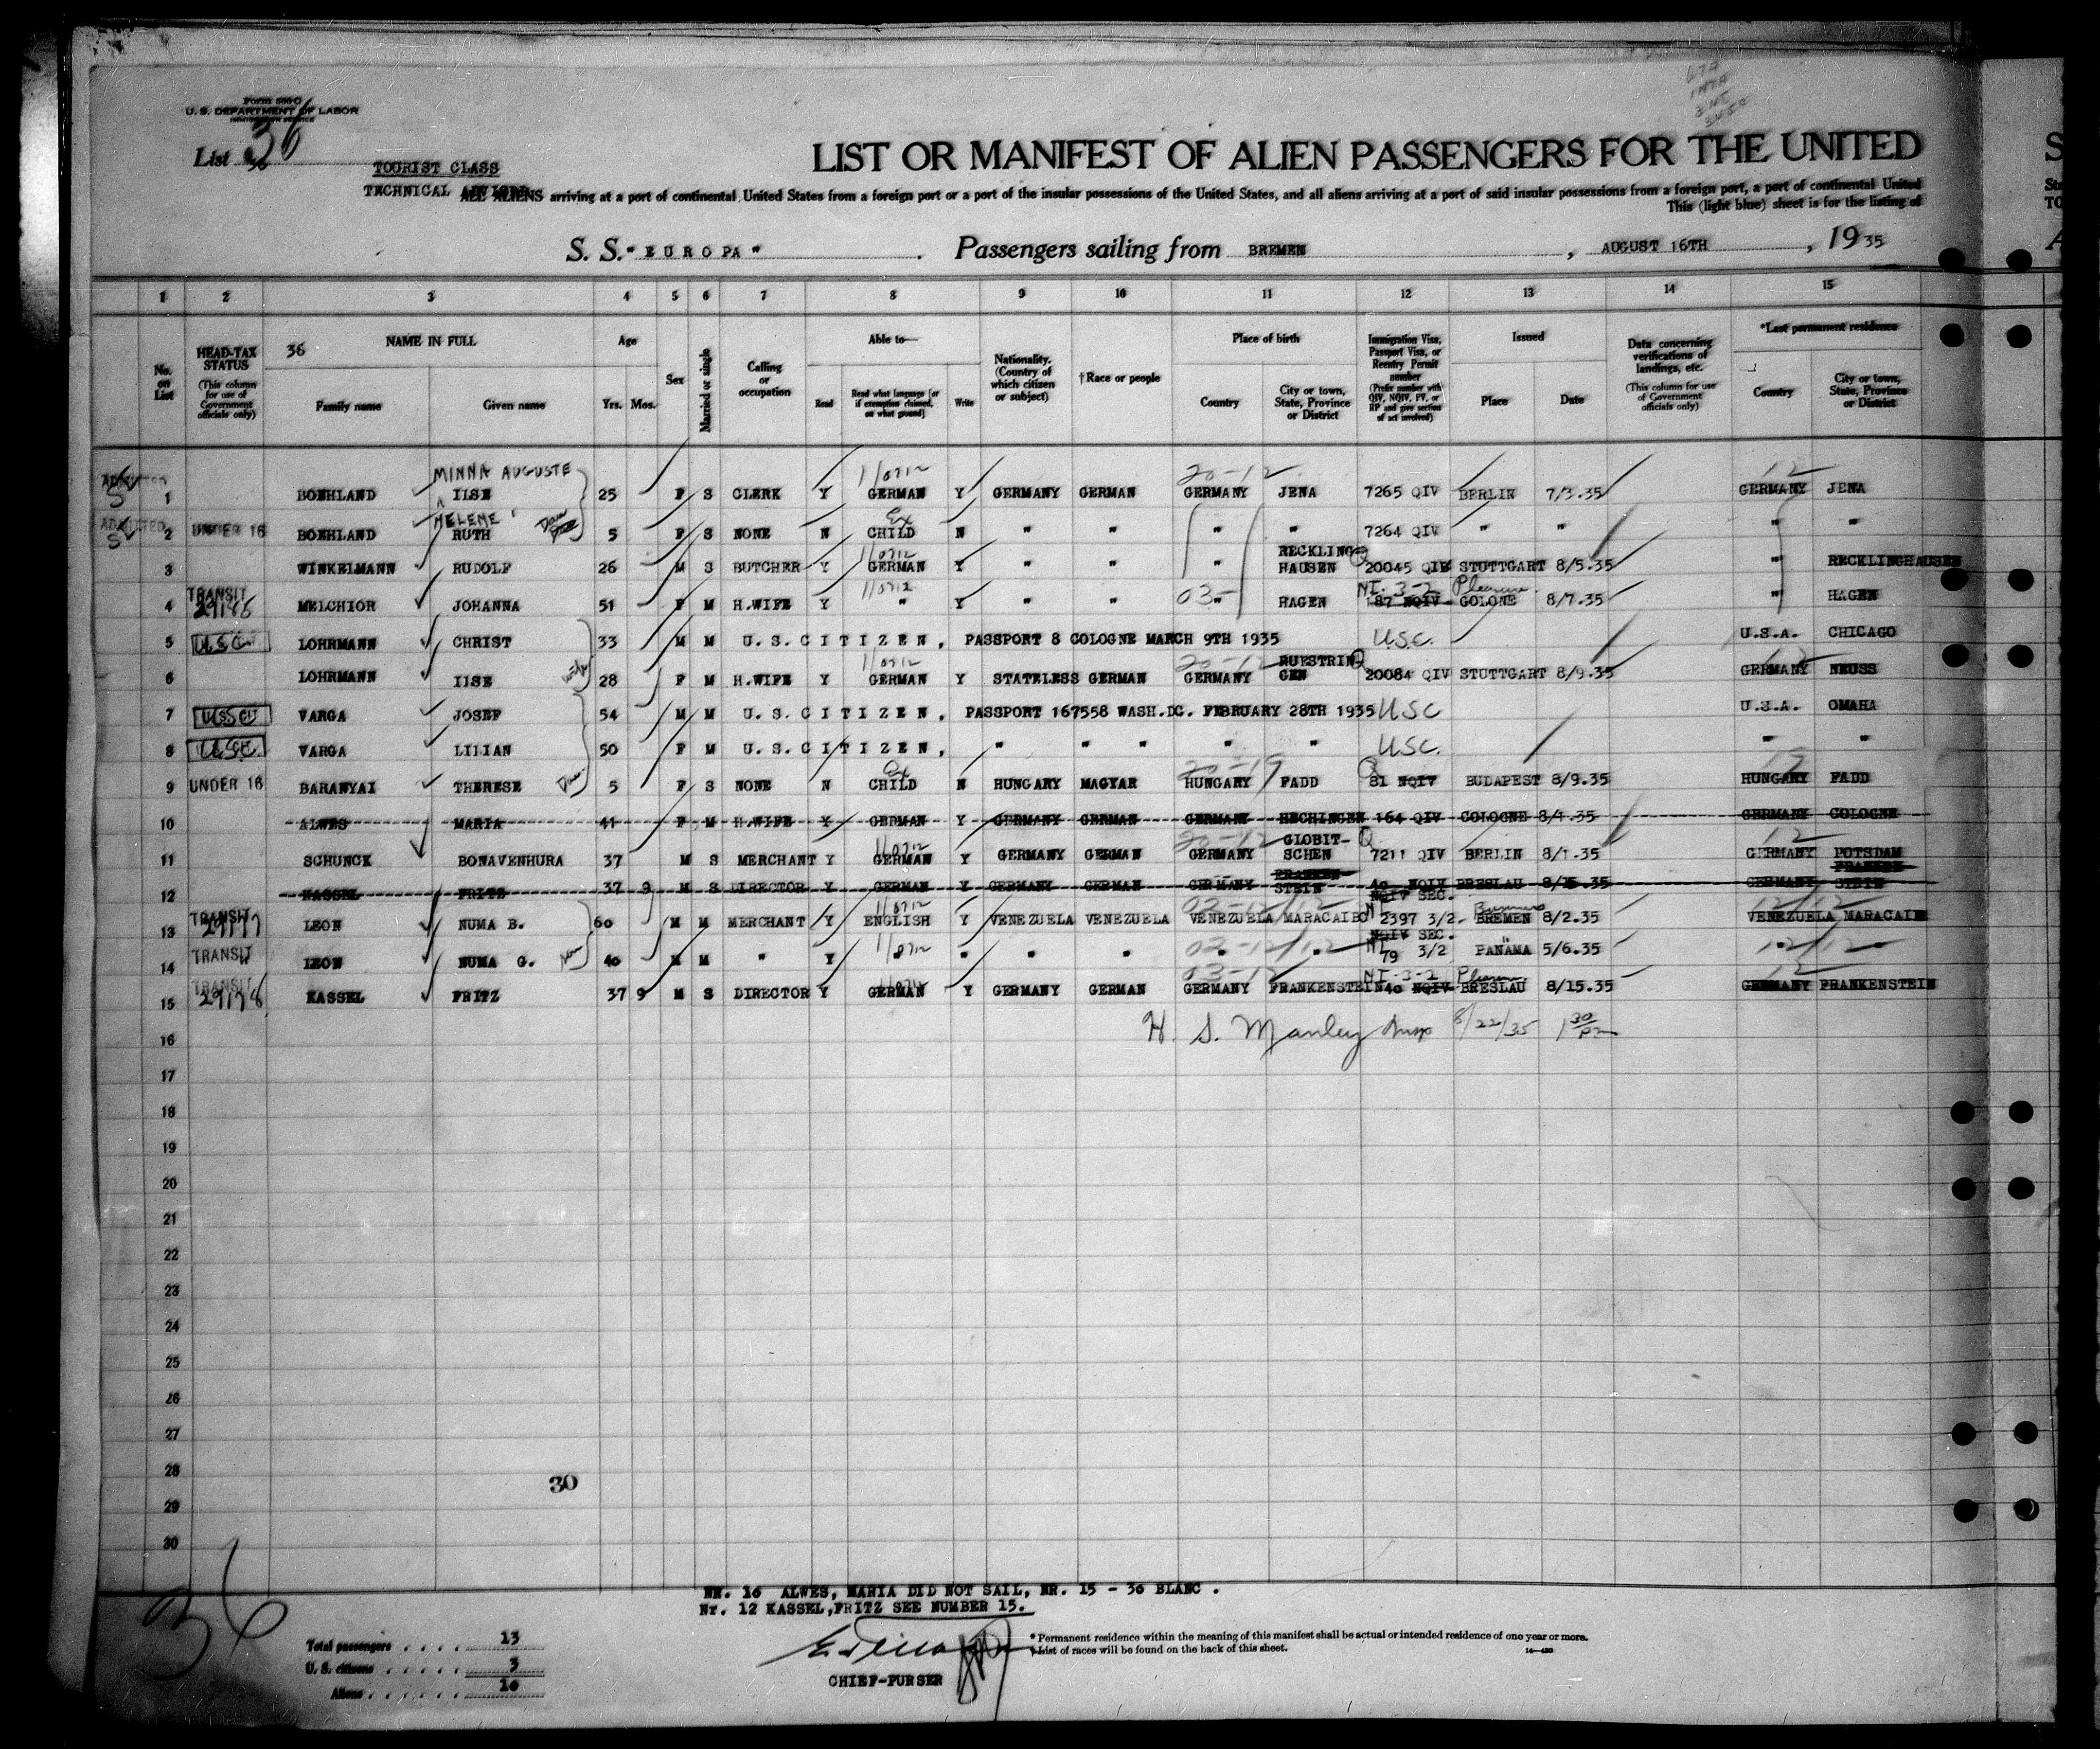 Form 500 C
U. S. DEPARTMENT OF LABOR
IMMIGRATION SERVICE
List 36
TOURIST CLASS
LIST OR MANIFEST OF ALIEN PASSENGERS FOR THE UNITED
TECHNICAL ALL ALIENS arriving at a port of continental United States from a foreign port or a port of the insular possessions of the United States, and all aliens arriving at a port of said insular possessions from a foreign port, a port of continental United
This (light blue) sheet is for the listing of
S. S. "EUROPA" Passengers sailing from BREMEN , AUGUST 16TH , 1935
1 2 3 4 5 6 7 8 9 10 11 12 13 14 15
No. on List
HEAD-TAX STATUS (This column for use of Government officials only)
36 NAME IN FULL
Family name Given name
Age Yrs. Mos.
Sex
Married or single
Calling or occupation
Able to— Read Read what language [or if exemption claimed, on what ground] Write
Nationality. (Country of which citizen or subject)
†Race or people
Place of birth Country City or town, State, Province or District
Immigration Visa, Passport Visa, or Reentry Permit number (Prefix number with QIV, NQIV, PV, or RP and give section of act involved)
Issued Place Date
Data concerning verifications of landings, etc. (This column for use of Government officials only)
*Last permanent residence Country City or town, State, Province or District
MINNA AUGUSTE 20-12 12
ADMITTED 1 BOEHLAND ILSE 25 F S CLERK Y GERMAN Y GERMANY GERMAN GERMANY JENA 7265 QIV BERLIN 7/3.35 GERMANY JENA
HELENE Ex
ADMITTED 2 UNDER 16 BOEHLAND RUTH 5 F S NONE N CHILD N " " " " 7264 QIV " " " "
3 WINKELMANN RUDOLF 26 M S BUTCHER Y GERMAN Y " " " RECKLING- HAUSEN 20045 QIV STUTTGART 8/5.35 " RECKLINGHAUSEN
NI-3-2 Pleasure
4 TRANSIT 29186 MELCHIOR JOHANNA 51 F M H.WIFE Y " Y " " 03- " HAGEN 187 NQIV GOLONE 8/7.35 " HAGEN
5 U.S.Cit LOHRMANN CHRIST 33 M M U.S.CITIZEN, PASSPORT 8 COLOGNE MARCH 9TH 1935 U.S.C. U.S.A. CHICAGO
6 LOHRMANN ILSE wife 28 F M H.WIFE Y GERMAN Y STATELESS GERMAN 20-12 GERMANY RUESTRIN GEN 20084 QIV STUTTGART 8/9.35 GERMANY NEUSS
7 USCit VARGA JOSEF 54 M M U.S.CITIZEN, PASSPORT 167558 WASH.DC. FEBRUARY 28TH 1935 USC U.S.A. OMAHA
8 U.S.C. VARGA LILIAN 50 F M U.S.CITIZEN, " " " " " USC. " "
9 UNDER 16 BARANYAI THERESE 5 F S NONE N Ex CHILD N HUNGARY MAGYAR 20-19 HUNGARY FADD 81 NQIV BUDAPEST 8/9.35 19 HUNGARY FADD
10 ALWES MARIA 41 F M H.WIFE Y GERMAN Y GERMANY GERMAN GERMANY HECHINGEN 164 QIV COLOGNE 8/1.35 GERMANY COLOGNE
11 SCHUNCK BONAVENHURA 37 M S MERCHANT Y GERMAN Y GERMANY GERMAN 20-12 GERMANY GLOBIT- SCHEN 7211 QIV BERLIN 8/1.35 12 GERMANY POTSDAM
12 KASSEL FRITZ 37 9 M S DIRECTOR Y GERMAN Y GERMANY GERMAN GERMANY FRANKEN STEIN 40 NQIV BRESLAU 8/15.35 GERMANY FRANKEN STEIN
NQIV SEC. Business
13 TRANSIT 29177 LEON NUMA B. 60 M M MERCHANT Y ENGLISH Y VENEZUELA VENEZUELA VENEZUELA MARACAIBO 2397 3/2. BREMEN 8/2.35 VENEZUELA MARACAIB
NQIV SEC.
14 TRANSIT LEON NUMA G. 40 M M " Y " " " " " " 79 3/2 PANAMA 5/6.35 " "
03-12 NI-3-2 Pleasure 12
15 TRANSIT 29178 KASSEL FRITZ 37 9 M S DIRECTOR Y GERMAN Y GERMANY GERMAN GERMANY FRANKENSTEIN 40 NQIV BRESLAU 8/15.35 GERMANY FRANKENSTEIN
16 H. S. Manley Insp 8/22/35 1 30 pm
17
18
19
20
21
22
23
24
25
26
27
28
30
29
30
36
NR. 10 ALWES, MARIA DID NOT SAIL, NR. 15 - 30 BLANC .
Nr. 12 KASSEL, FRITZ SEE NUMBER 15.
Total passengers . . . . 13
U. S. citizens . . . . . 3
Aliens . . . . . . 10
CHIEF-PURSER
* Permanent residence within the meaning of this manifest shall be actual or intended residence of one year or more.
† List of races will be found on the back of this sheet.